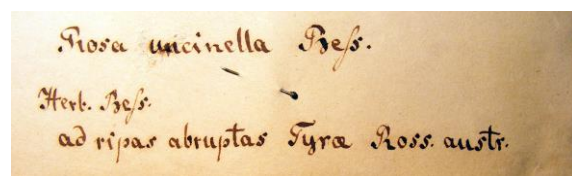 Rosa uncinella Bess.
Herb. Bess.
ad ripas abruptas Tyræ Ross. austr.